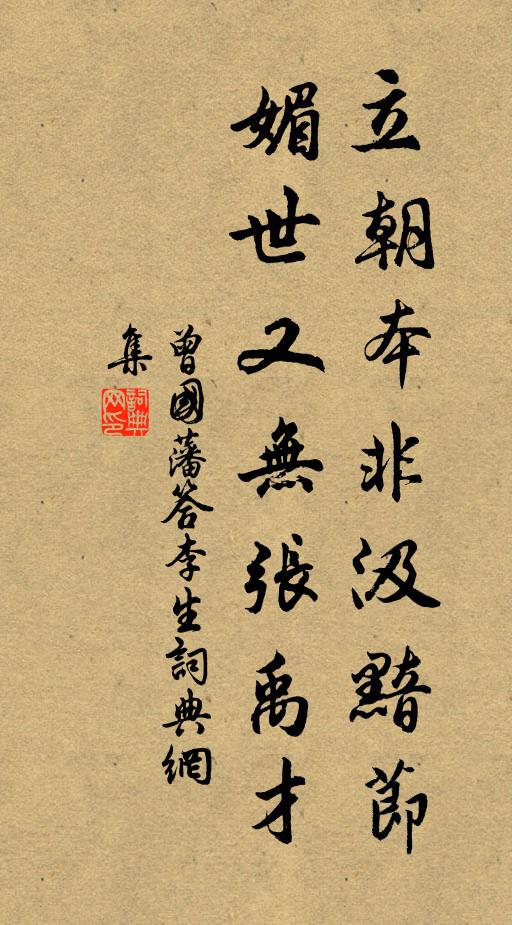 立朝本非汲黯節
媚世又無張禹才
曾國藩答李生詞典網
集
詞典
网印